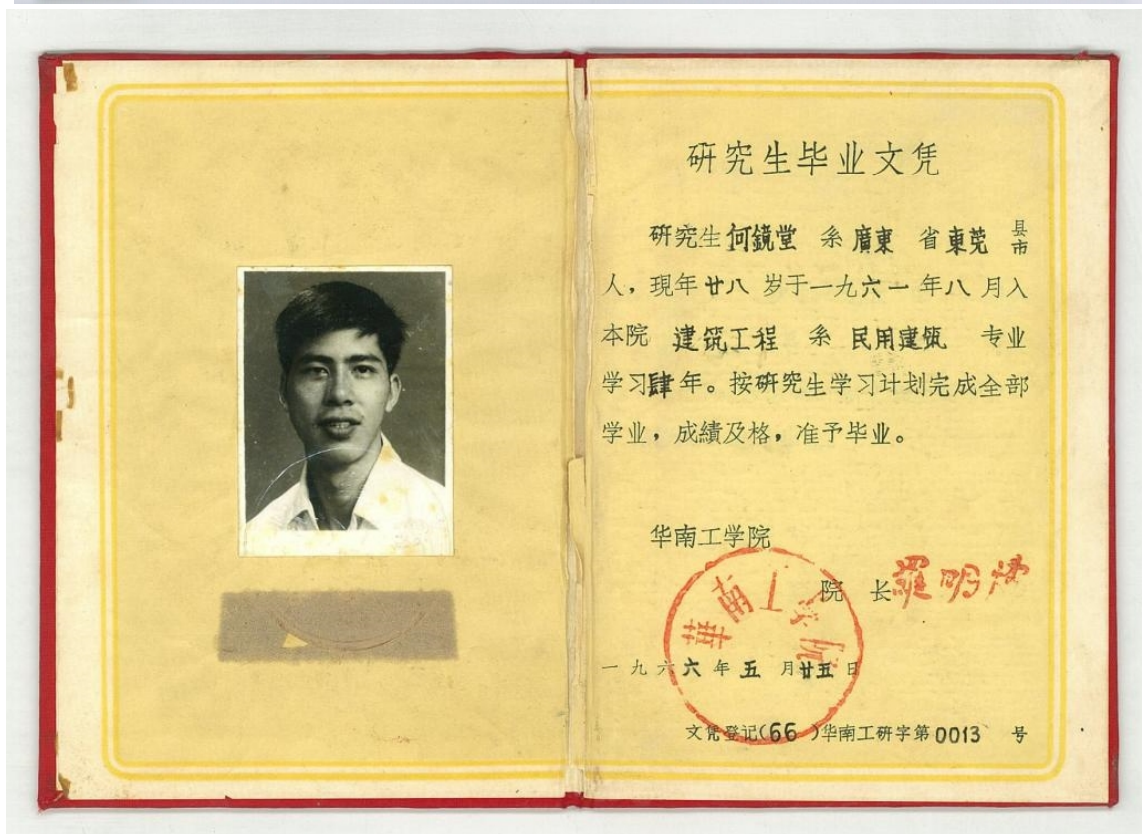 研究生毕业文凭
研究生何鏡堂 系廣東 省東莞 县市
人，現年廿八 岁于一九六一年八月入
本院 建筑工程 系 民用建筑 专业
学习肆年。按研究生学习计划完成全部
学业，成績及格，准予毕业。
华南工学院
院 长 羅明燏
華南工学院
一九六六年五月廿五日
文凭登记(66)华南工研字第0013 号